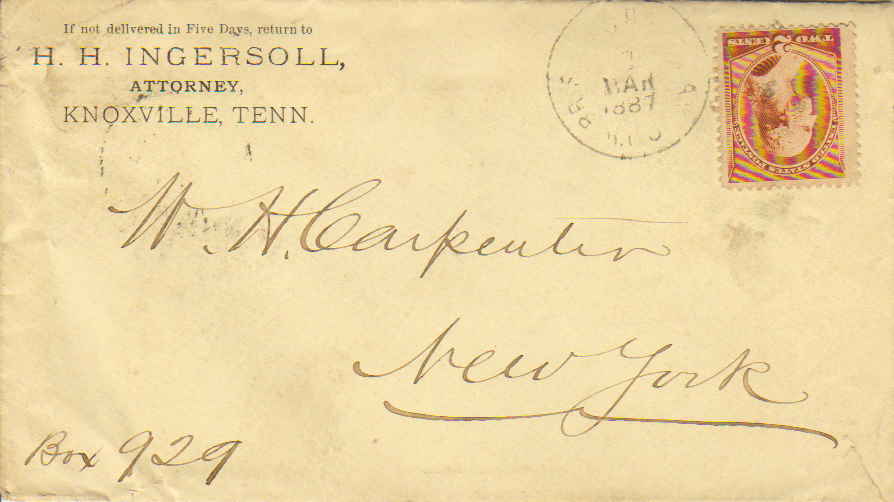 If not delivered in Five Days, return to
H. H. INGERSOLL,
ATTORNEY,
KNOXVILLE, TENN.
MAR
1887
TWO 2 CENTS
UNITED STATES POSTAGE
W. H. Carpenter
New York
Box 929